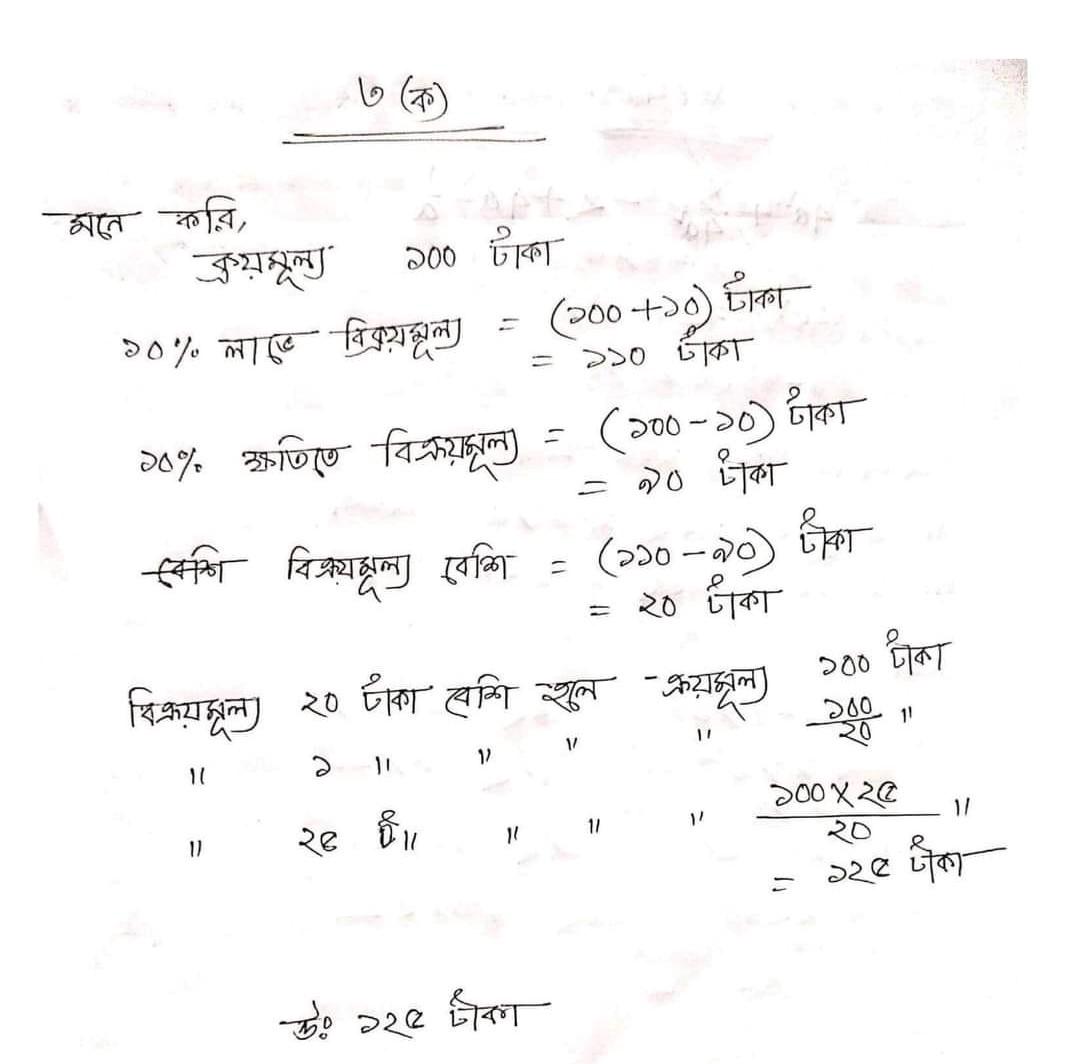 ৩ (ক)
মনে করি,
ক্রয়মূল্য ১০০ টাকা
১০% লাভে বিক্রয়মূল্য = (১০০ + ১০) টাকা
= ১১০ টাকা
১০% ক্ষতিতে বিক্রয়মূল্য = (১০০ - ১০) টাকা
= ৯০ টাকা
বেশি বিক্রয়মূল্য বেশি = (১১০ - ৯০) টাকা
= ২০ টাকা
বিক্রয়মূল্য ২০ টাকা বেশি হলে ক্রয়মূল্য ১০০ টাকা
" ১ " " " " ১০০/২০ "
" ২৫ ট " " " " ১০০ X ২৫/২০ "
= ১২৫ টাকা
উঃ ১২৫ টাকা